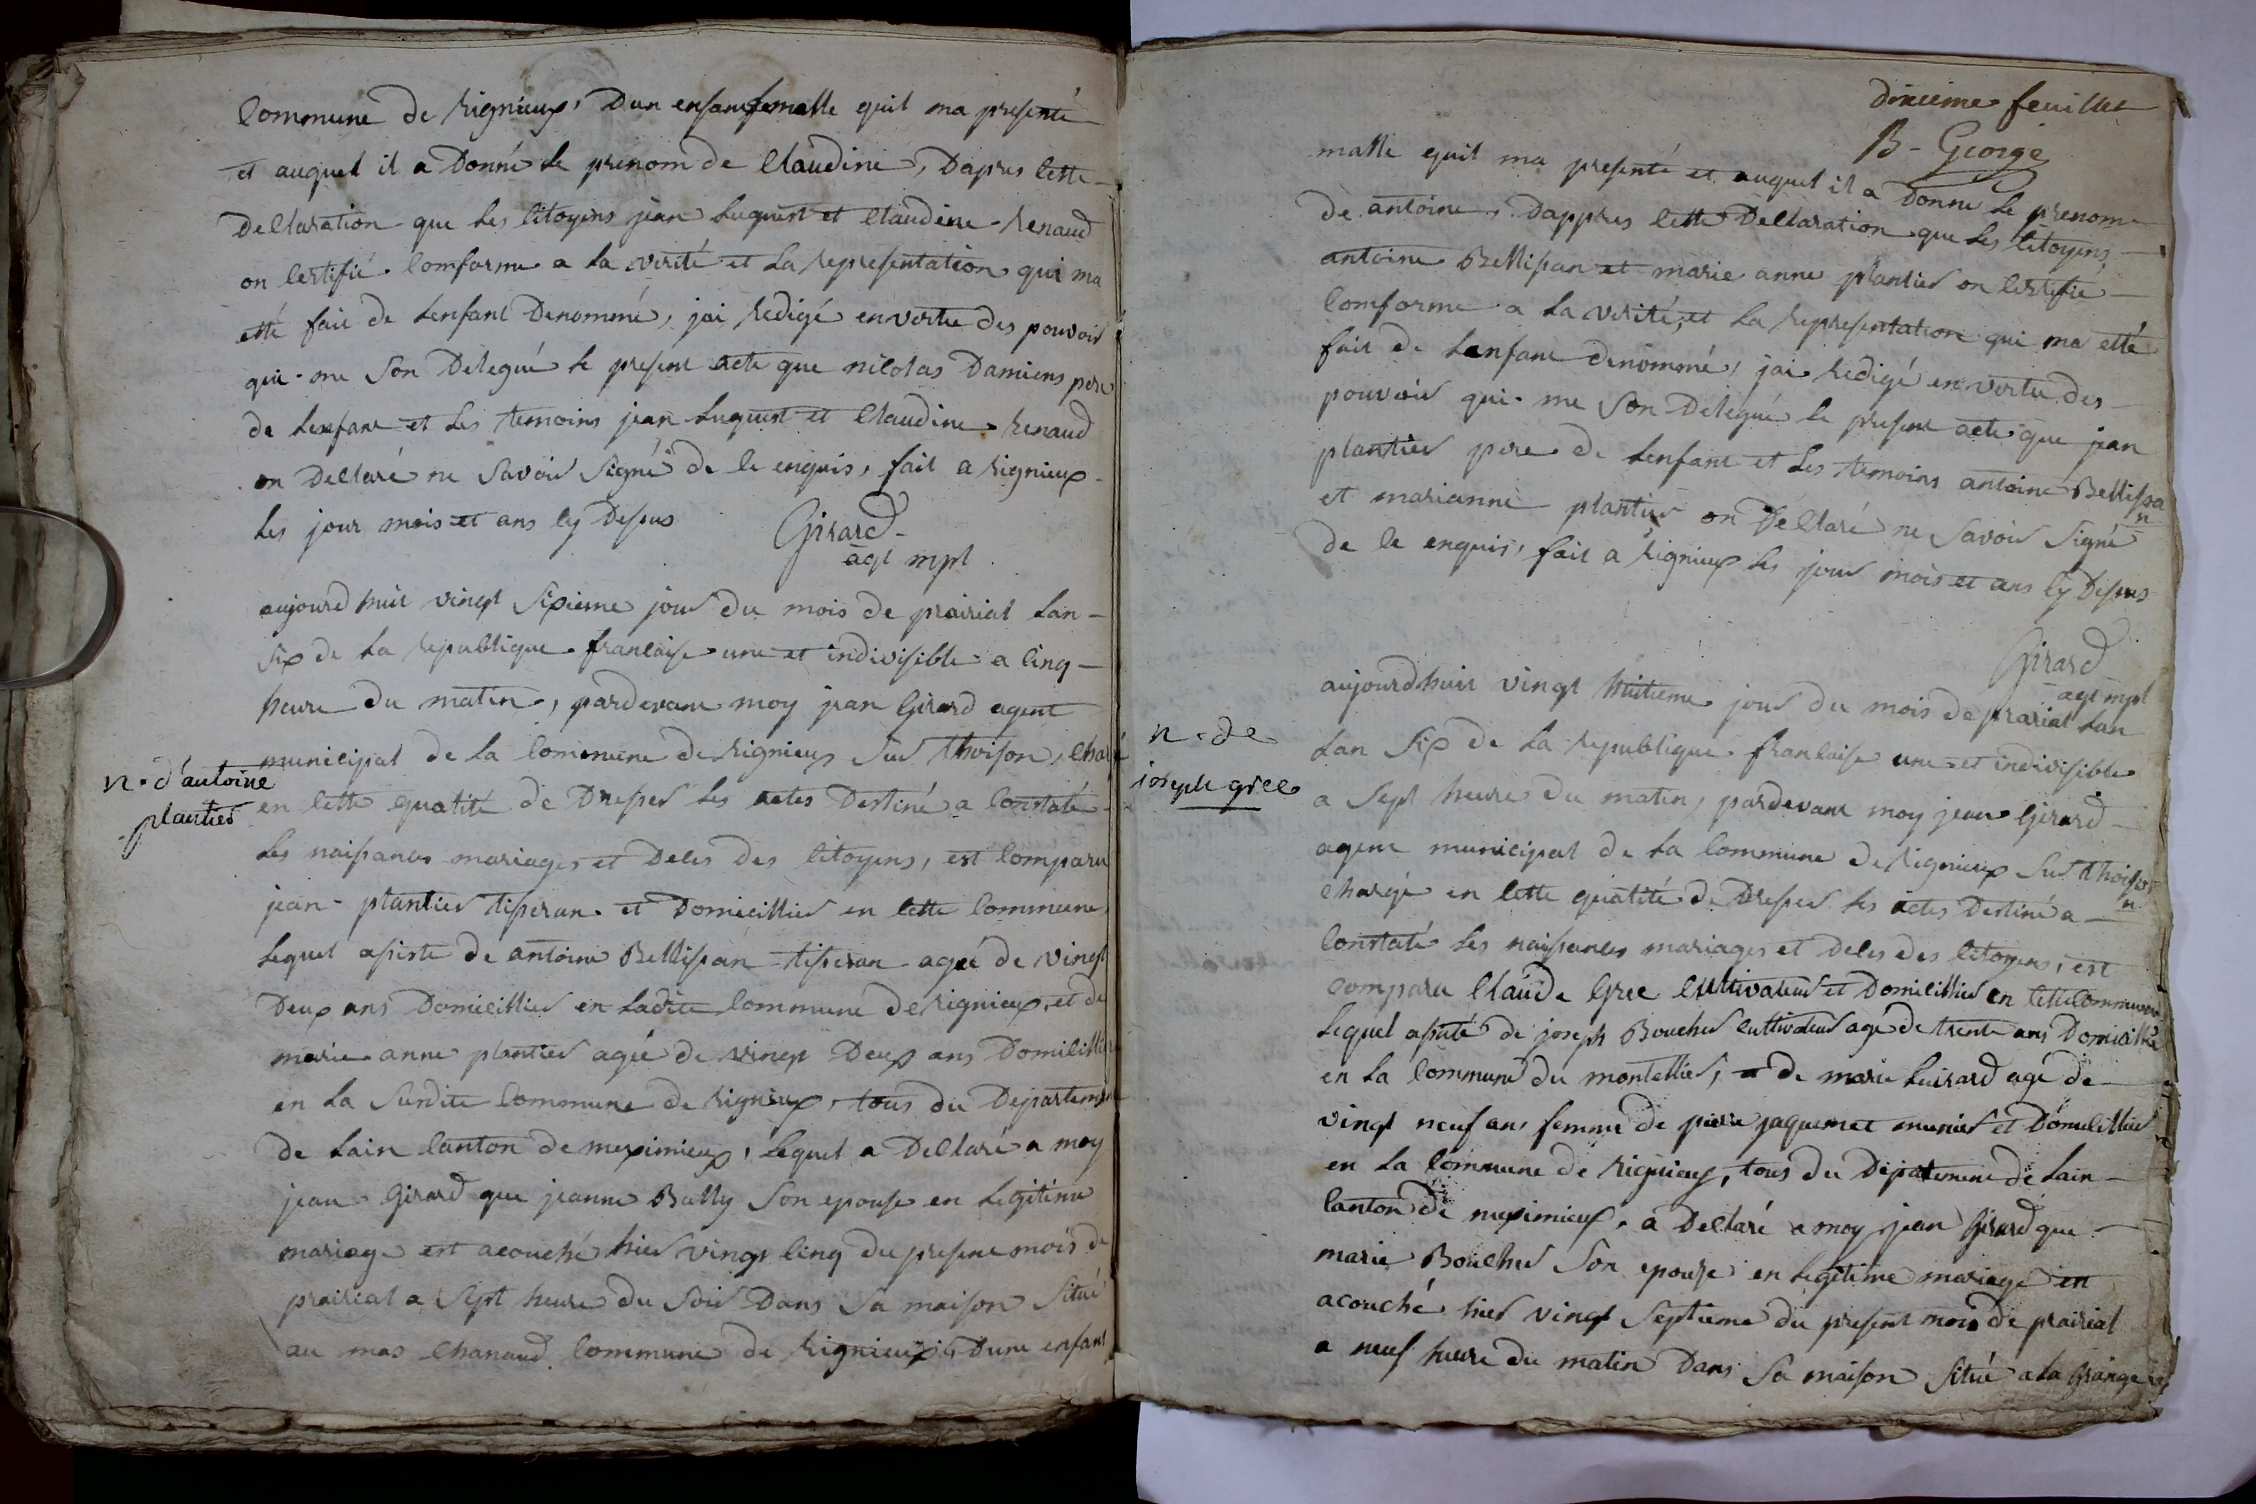 Commune de Rignieux, Dun enfant femelle quil ma presenté
et auquel il a Donné le prenom de Claudine, Dapres cette
Declaration que les citoyens jean Luquist et Claudine Renaud
on certifié comforme a la verité et la representation qui ma
etté fait de lenfant Denommé, jai Redigé en vertu des pouvoir
qui me son Delegué le present acte que nicolas Damiens pere
de lenfant et les temoins jean Luquist et Claudine Renaud
on Declaré ne Savoir Signé de le enquis, fait a Rignieux
les jour mois et ans cy Desus
Girard
agt mpl
aujourdhuit vingt Sixieme jour du mois de prairial lan
Six de la Republique francaise une et indivisible a cinq
heure du matin, pardevant moy jean Girard agent
municipal de la Commune de Rignieux Sur Choison, chargé
n. d'antoine
plantier
en cette qualité de Dresser les actes Destiné a constaté
les naisances mariages et Deces des citoyens, est comparu
jean plantier tiseran et Domicillier en cette Commune
lequel asiste de antoine Bellisan tiseran agée de vingt
Deux ans Domicillier en ladite Commune de Rignieux, et de
marie anne plantier agée de vingt Deux ans Domicillier
en la Surdite Commune de Rignieux, tous du Departement
de Lain Canton de meximieux, lequel a Declaré a moy
jean Girard que jeanne Bally Son epouse en Legitime
mariage est acouché hier vingt cinq du present mois de
prairial a Sept heure du Soir Dans Sa maison Situé
au mas Chanaud Commune de Rignieux, Dune enfant
dixieme feuillet
B - George
malle quil ma presenté et auquel il a Donné le prenom
de antoine, Dappres cette Declaration que les citoyens
antoine Bellisan et marie anne plantier on certifié
comforme a la verité, et la Representation qui ma etté
fait de Lenfant denommé, jai Redigé en vertu des
pouvoir qui me Son Delegué le present acte que jean
plantier pere de Lenfant et les temoins antoine Bellissan
et marianne plantier on Declaré ne Savoir Signé
de le enquis, fait a Rignieux les jour mois et ans cy Desus
Girard
agt mpl
aujourdhuit vingt huitieme jour du mois de prairial Lan
n. de
joseph gree
Lan Six de la Republique francaise une et indivisible
a Sept heure du matin, pardevant moy jean Girard
agent municipal de la Commune de Rignieux Sur Choison
chargé en cette qualité de Dresser les actes Destiné a
constaté les naisances mariages et Deces des citoyens, est
comparu Claude Gree Cultivateur et Domicillier en cette Commune
lequel asisté de joseph Boucher cultivateur agé de trente ans Domicillié
en la Commune du montellier, et de marie Luirard agé de
vingt neuf ans femme de pierre jaquemet munier et Domicillier
en la Commune de Rignieux, tous du Departement de Lain
Canton de meximieux, a Declaré a moy jean Girard que
marie Boucher Son epouse en Legitime mariage en
acouché hier vingt Septieme du present mois de prairial
a neuf heure du matin Dans Sa maison Situé a la Grange